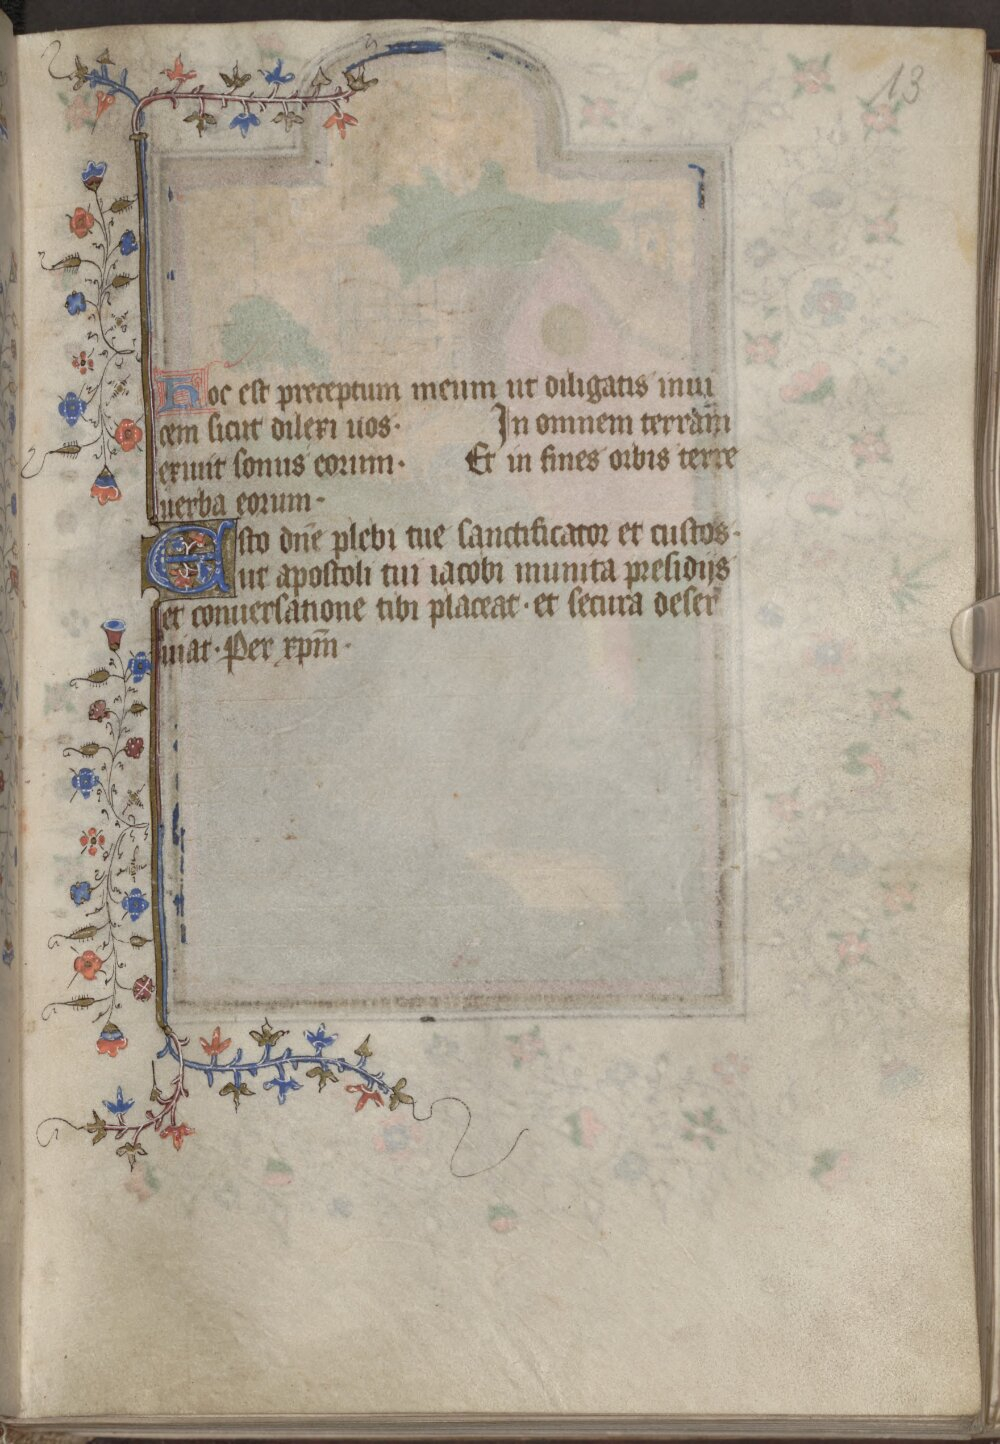 13
Hoc est preceptum meum ut diligatis inui
cem sicut dilexi uos· In omnem terram
exiuit sonus eorum· Et in fines orbis terre
uerba eorum·
Esto dñe plebi tue sanctificator et custos·
ut apostoli tui iacobi munita presidijs
et conuersatione tibi placeat· et secura deser
uiat· Per xpm̄·